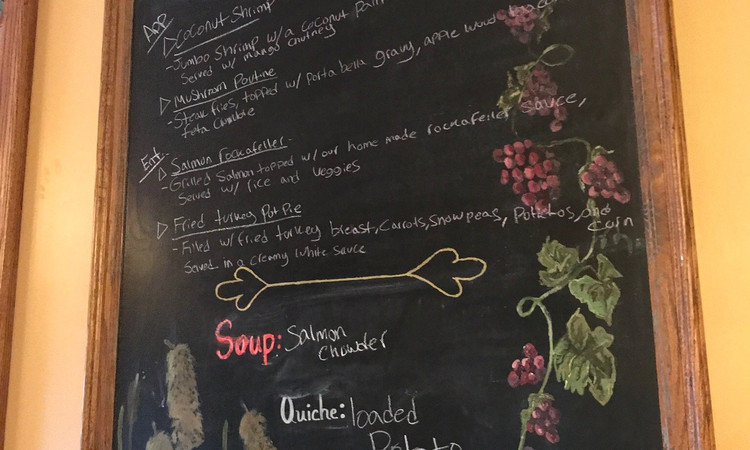 App
Coconut Shrimp
- Jumbo Shrimp w/ a coconut
Served w/ mango chutney
Mushroom Poutine
- Steak fries, topped w/ Portabella gravy, apple wood
feta crumble
Ent
Salmon rockafeller -
- Grilled Salmon topped w/ our home made rockafeller sauce,
Served w/ rice and veggies
Fried turkey Pot Pie
- Filled w/ fried turkey breast, Carrots, Snow peas, Potatos, and
corn
Saved in a creamy white sauce
Soup: Salmon
Chowder
Quiche: loaded
Potato